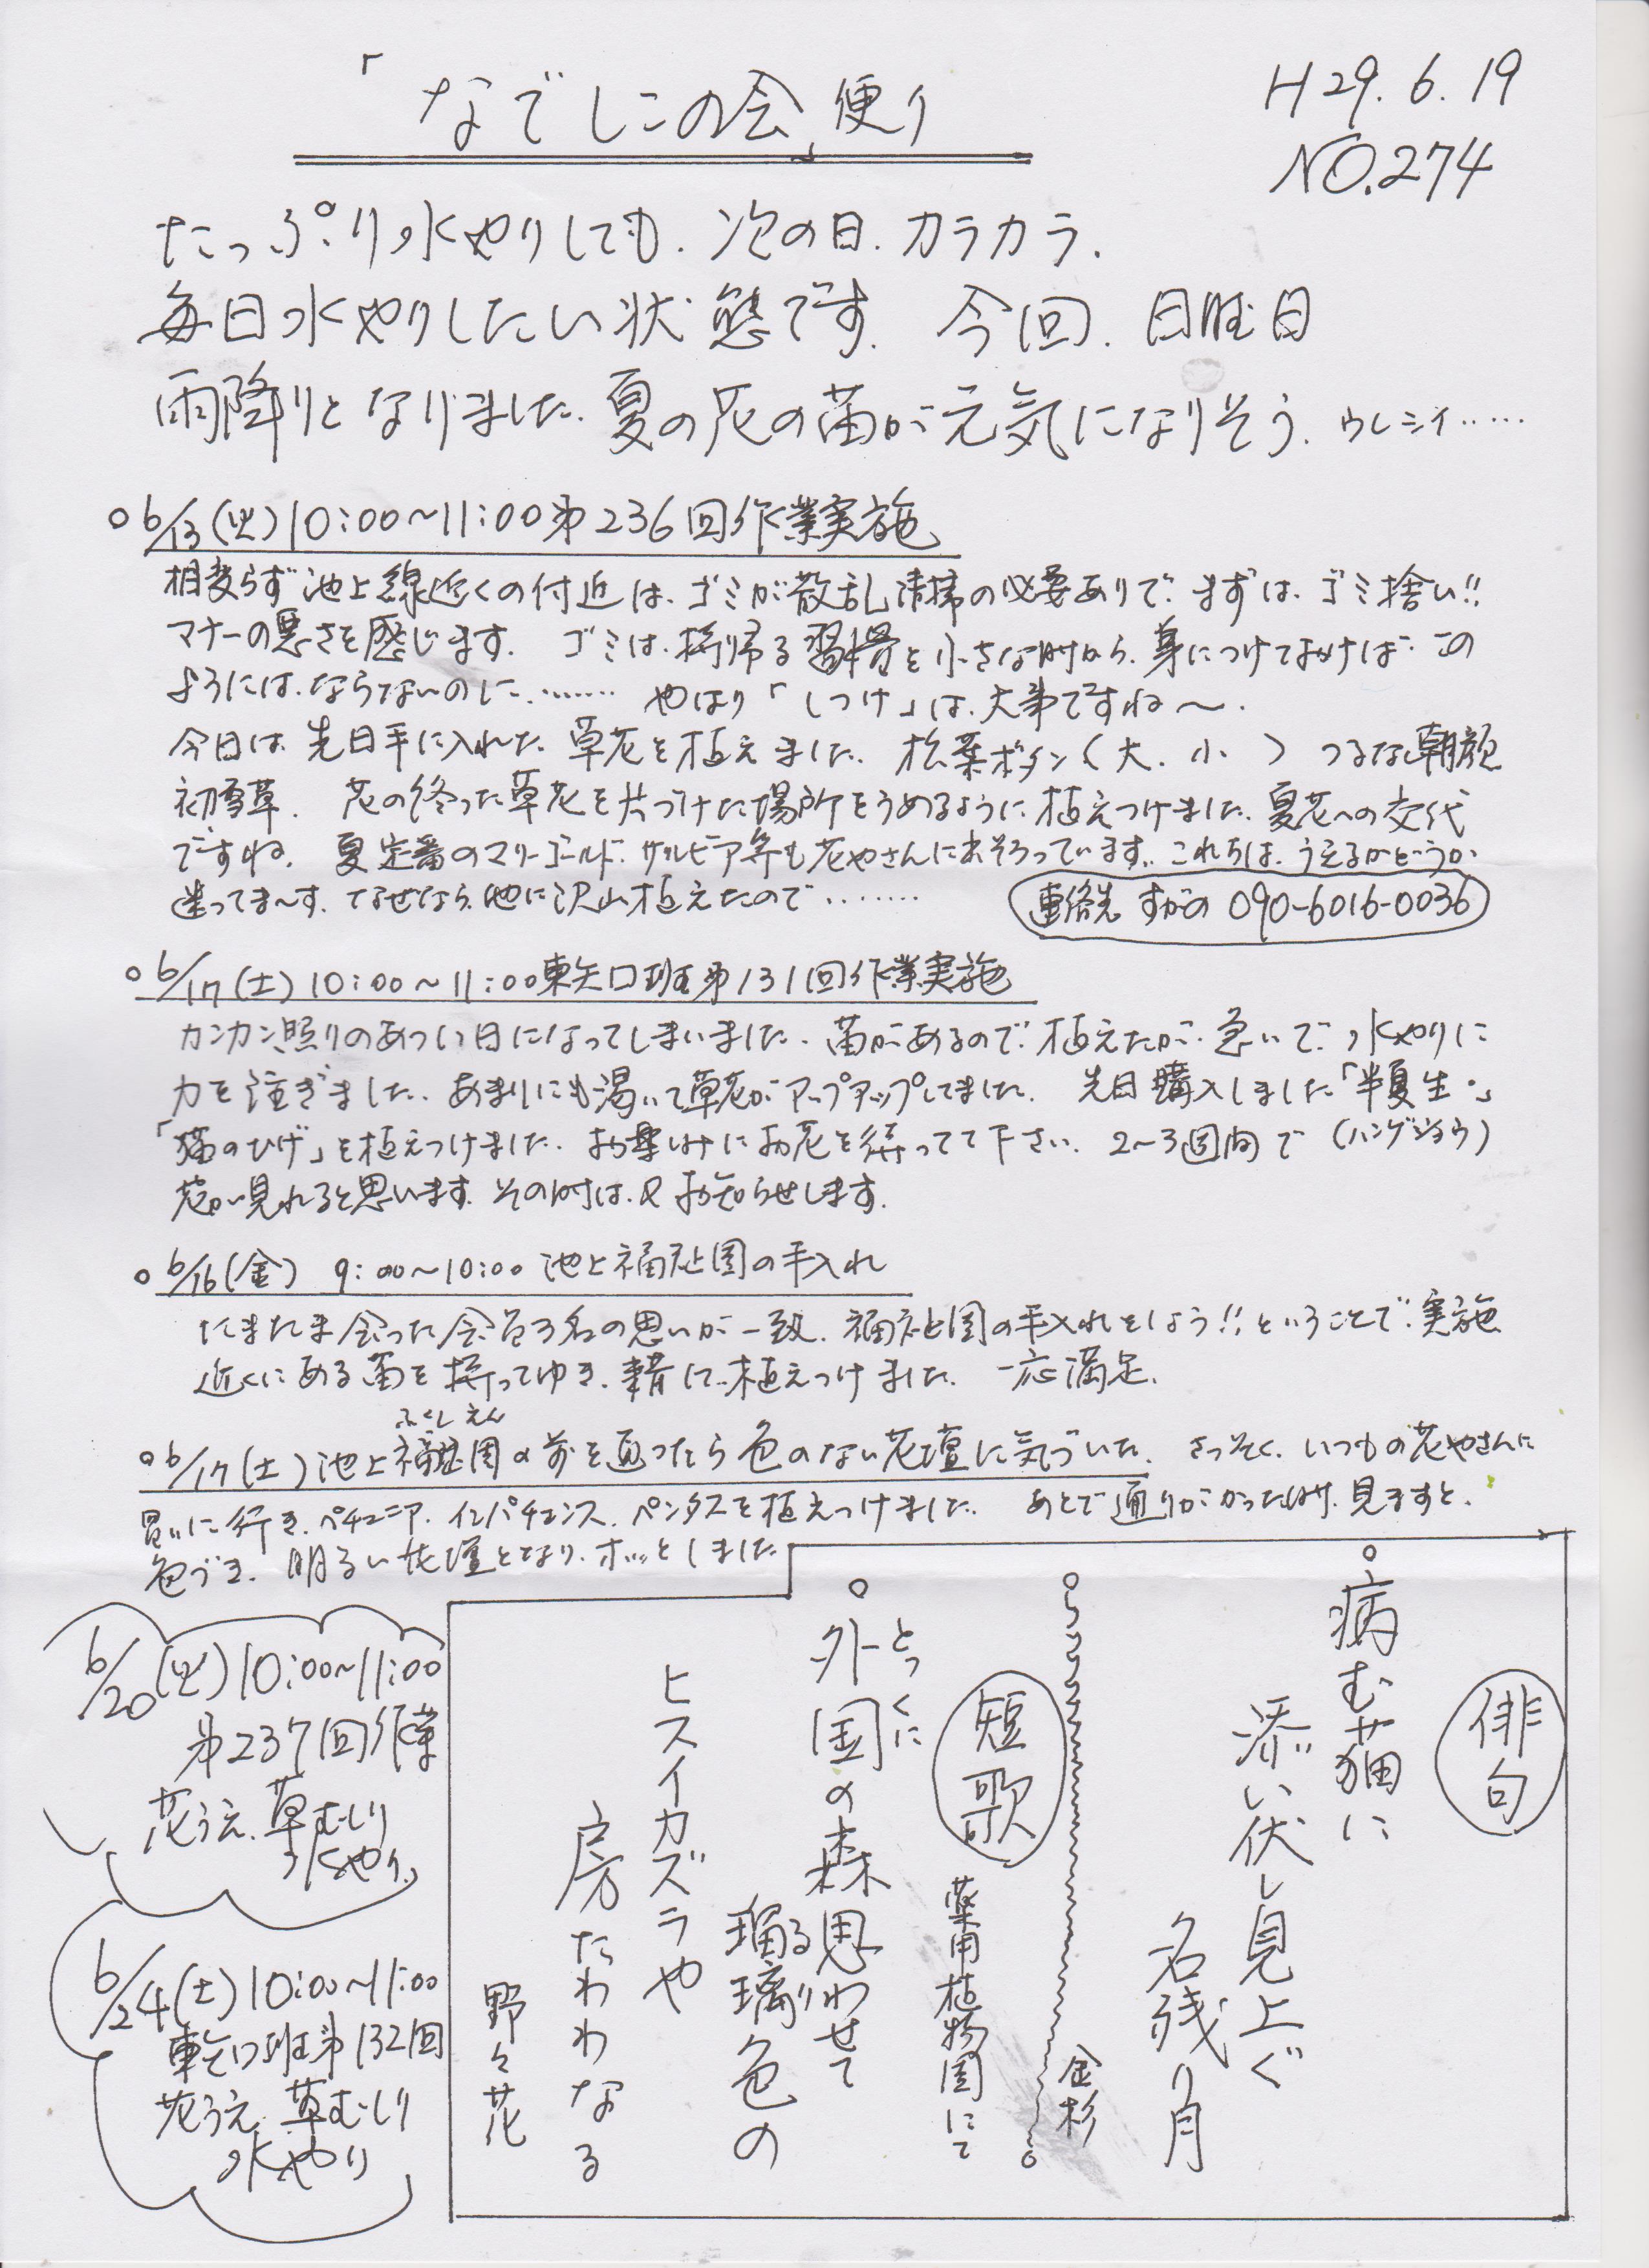 「なでしこの会」便り
H29.6.19
NO.274
たっぷり水やりしても.次の日.カラカラ.
毎日水やりしたい状態です.今回.日曜日
雨降りとなりました.夏の花の苗が元気になりそう.ウレシイ……
○6/13(火)10:00~11:00第236回作業実施
相変らず池上線近くの付近は、ゴミが散乱清掃の必要ありで.まずは.ゴミ捨い!!
マナーの悪さを感じます.ゴミは.持帰る習慣を小さな時から.身につけておけば.この
ようには.ならないのに.…… やはり「しつけ」は.大事ですね～.
今日は.先日手に入れた.草花を植えました.松葉ボタン(大.小)つるなし朝顔
初雪草.花の終った草花を片づけた場所をうめるように.植えつけました.夏花への交代
ですね.夏定番のマリーゴールド.サルビア等も花やさんにおそろっています..これらは.うえるかどうか
迷ってま～す.なぜなら.他に沢山植えたので……
連絡先 すがの 090-6016-0036
○6/17(土)10:00~11:00東矢口班第131回作業実施
カンカン照りのあつい日になってしまいました.苗があるので.植えたが.急いで.水やりに
力を注ぎました.あまりにも渇いて草花がアップアップしてました.先日購入しました「半夏生.」
「猫のひげ」を植えつけました.お楽しみにお花を待ってて下さい.2~3週間で(ハンゲショウ)
花が見れると思います.その時は.又お知らせします.
○6/16(金) 9:00~10:00池上福祉園の手入れ
たまたま会った会員3名の思いが一致.福祉園の手入れをしよう!!ということで.実施
近くにある苗を持ってゆき.植えつけました.一応満足.
ふくしえん
○6/17(土)池上福祉園の前を通ったら色のない花壇に気づいた.さっそく.いつもの花やさんに
買いに行き.ペチュニア.インパチェンス.ペンタスを植えつけました.あとで通りがかったので.見ますと.
色づき.明るい花壇となり.ホッとしました
俳句
○病む猫に
添い伏し見上ぐ
名残り月
金杉
短歌
薬用植物園にて
○外国の森思わせて
とつくに
瑠璃色の
るり
ヒスイカズラや
房たわわなる
野々花
6/20(火)10:00~11:00
第237回作業
花うえ.草むしり
水やり.
6/24(土)10:00~11:00
東矢口班第132回
花うえ.草むしり
水やり